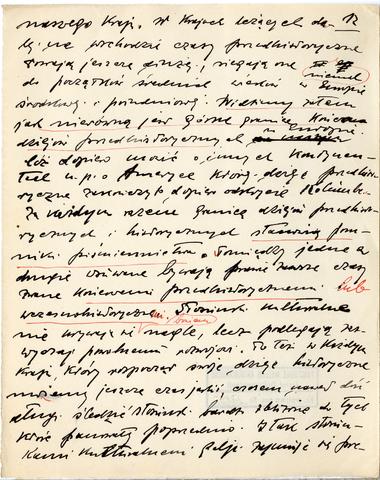 naszego kraju. W krajach leżących da- 12
lej na wschodzie czasy przedhistoryczne
trwają jeszcze dłużej, sięgając one niemal
do początków średniow. wieków w Europie
środkowej i południowej. Widzimy zatem
jak nierówną jest górna granica końcowa
dziejów przedhistorycznych w Europie.
Cóż dopiero mówić o innych kontynen-
tach n.p. o Ameryce której dzieje przedhisto-
ryczne zakończyło dopiero odkrycie Kolumba.
Za każdym razem granicę dziejów przedhisto-
rycznych i historycznych stanowią pom-
niki piśmiennictwa. Pomiędzy jedne a
drugie wsuwane bywają prawie zawsze czasy
zwane końcowemi przedhistorycznemi lub
wczesnohistorycznemi. Stosunki kulturalne
nie urywają się nagle, lecz podlegają za-
wyczaj powolnemu rozwojowi. To też w każdym
kraju, który rozpoczął swoje dzieje historyczne
możemy jeszcze czas jakiś czasem nawet dość
długi śledzić stosunki bardzo zbliżone do tych
które panowały poprzednio. Z tak stosun-
kami kulturalnemi